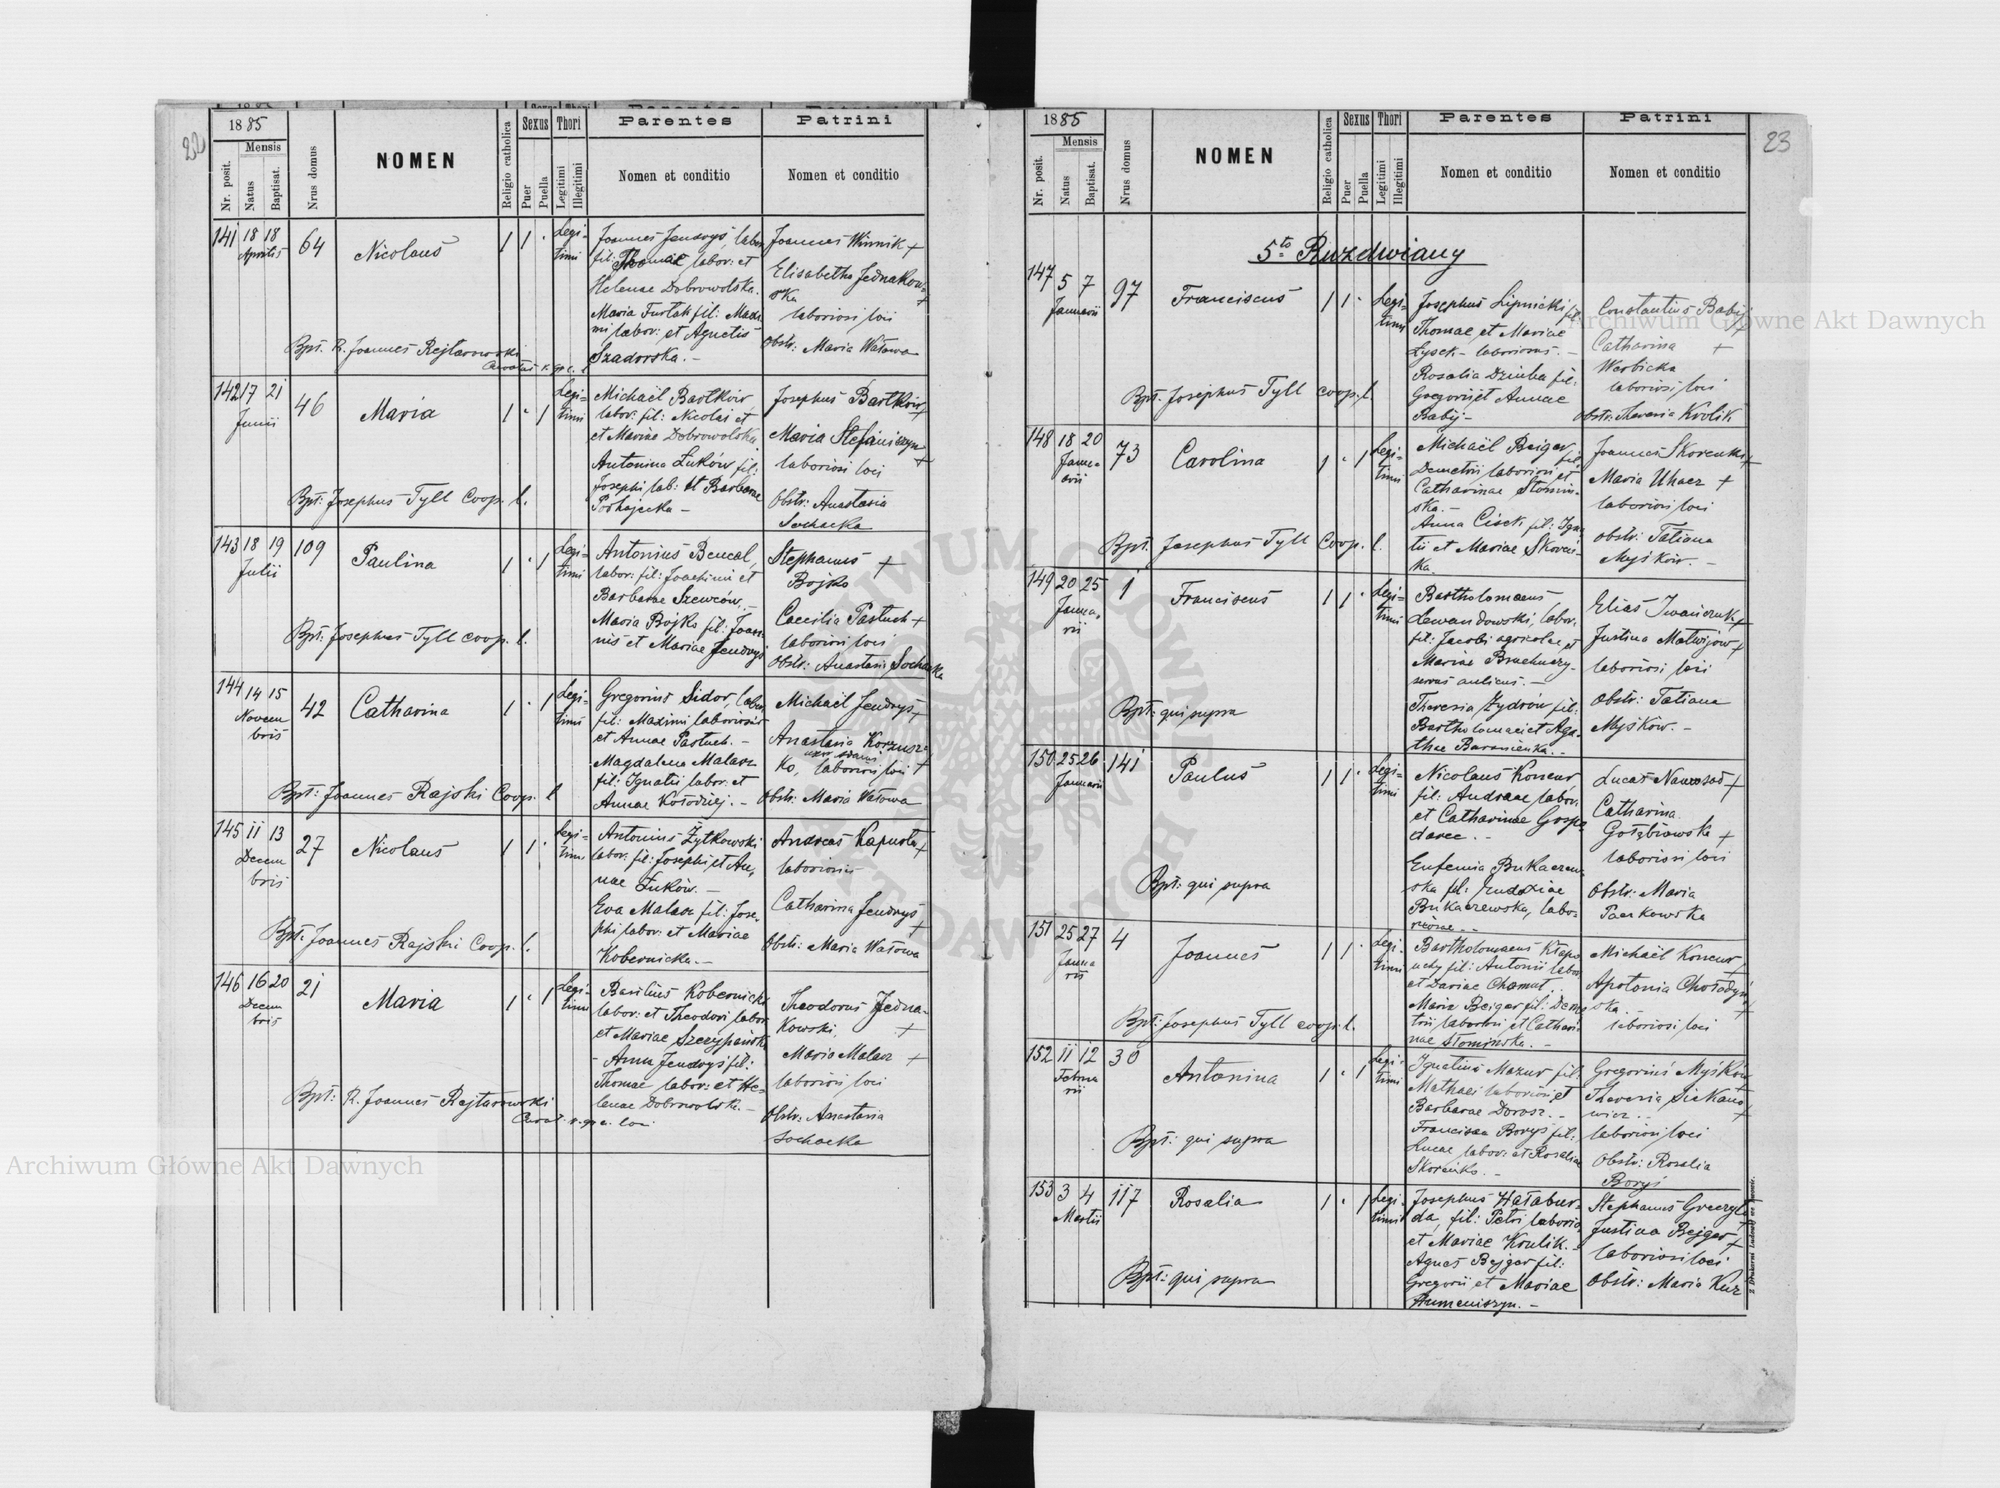 22
1885
Mensis
Nr. posit.
Natus
Baptisat.
Nrus domus
NOMEN
Religio catholica
Sexus
Puer
Puella
Thori
Legitimi
Illegitimi
Parentes
Nomen et conditio
Patrini
Nomen et conditio
141 18 18 Aprilis 64 Nicolaus 1 1 Legitimi
Joannes Jendryś, labor.
fil: Thomae labor: et
Helenae Dobrowolska.
Maria Furtak fil: Maxi-
mi labor: et Agnetis
Szadorska.
Joannes Winnik +
Elisabetha Jednakow-
ska +
laboriosi loci
Obstr: Maria Wałowa
Bpt. R. Joannes Rejtarowski
142 17 21 Junii 46 Maria 1 1 Legitimi
Michaël Bartków
labor: fil: Nicolai et
et Mariae Dobrowolska
Antonina Łuków fil:
Josephi lab: et Barbarae
Podhajecka –
Josephus Bartków +
Maria Stefaniszyn +
laboriosi loci
Obstr: Anastasia
Sochacka
Bpt: Josephus Tyll Coop. l.
143 18 19 Julii 109 Paulina 1 1 Legitimi
Antonius Bencal,
labor: fil: Joachimi et
Barbarae Szewców. –
Maria Bojko fil: Joan-
nis et Mariae Jendryś
Stephanus +
Bojko
Caecilia Pastuch +
laboriosi loci
Obstr: Anastasia Sochacka
Bpt: Josephus Tyll coop. l.
144 14 15 Novembris 42 Catharina 1 1 Legitimi
Gregorius Sidor, labor.
fil: Maximi laboriosi
et Annae Pastuch. –
Magdalena Malacz
fil: Ignatii labor: et
Annae Kołodziej. –
Michaël Jendryś +
Anastasia Korzusz-
ko,
laboriosi loci +
Obstr: Maria Wałowa
Bpt: Joannes Rajski Coop. l
145 11 13 Decembris 27 Nicolaus 1 1 Legitimi
Antonius Żytkowski
labor: fil: Josephi et An-
nae Łuków. –
Eva Malacz fil: Jose-
phi labor: et Mariae
Kobernicka. –
Andreas Kapusta +
laboriosi
Catharina Jendryś +
Obstr: Maria Wałowa
Bpt: Joannes Rajski Coop. l.
146 16 20 Decembris 21 Maria 1 1 Legitimi
Basilius Kobernicki
labor: et Theodori labor
et Mariae Szczypańska
– Anna Jendryś fil:
Thomae labor: et He-
lenae Dobrowolska. –
Theodorus Jedna-
kowski, +
Maria Malacz +
laboriosi loci
Obstr: Anastasia
Sochacka
Bpt: R. Joannes Rejtarowski
23
1885
Mensis
Nr. posit.
Natus
Baptisat.
Nrus domus
NOMEN
Religio catholica
Sexus
Puer
Puella
Thori
Legitimi
Illegitimi
Parentes
Nomen et conditio
Patrini
Nomen et conditio
5to Ruzdwiany
147 5 7 Januarii 97 Franciscus 1 1 Legitimi
Josephus Lipnicki fil
Thomae et Mariae
Lysek – laboriosus. –
Rosalia Dziuba fil:
Gregorii et Annae
Babij –
Constantius Babij +
Catharina +
Werbicka
laboriosi loci
Obstr: Theresia Krolik
Bpt: Josephus Tyll coop. l.
148 18 20 Januarii 73 Carolina 1 1 Legitimi
Michaël Beigar fil
Demetrii laboriosi et
Catharinae Słomin-
ska. –
Anna Cisek fil: Igna-
tii et Mariae Skoren-
ka.
Joannes Skorenki +
Maria Uhacz +
laboriosi loci
obstr: Tatiana
Myśków. –
Bpt. Josephus Tyll Coop. l.
149 20 25 Januarii 1 Franciscus 1 1 Legitimi
Bartholomaeus
Lewandowski, labor.
fil: Jacobi agricolae et
Mariae
servus aulicus. –
Theresia Żydrów fil:
Bartholomaei et Aga-
thae Baranienka. –
Elias Iwańczuk +
Justina Matwijow +
laboriosi loci
Obstr: Tatiana
Myśków. –
Bpt: qui supra
150 25 26 Januarii 141 Paulus 1 1 Legitimi
Nicolaus Koncur
fil: Andreae labor:
et Catharinae Gospo
darec. –
Eufemia Bukaczew
ska fil: Eudoxiae
Bukaczewska, labo-
riosae. –
Lucas Nawosad +
Catharina
Gołębiowska +
laboriosi loci
Obstr: Maria
Packowska
Bpt: qui supra
151 25 27 Januarii 4 Joannes 1 1 Legitimi
Bartholomaeus Kłapo
uchy fil: Antonii labor
et Dariae Chomut.
Maria Beigar fil: Deme
trii laboriosi et Cathari
nae Słominska. –
Michaël Koncur +
Apolonia Chołodyń
ska. – +
laboriosi loci
Bpt: Josephus Tyll coop. l.
152 11 12 Februarii 30 Antonina 1 1 Legitimi
Ignatius Mazur fil:
Mathaei laboriosi et
Barbarae Dorosz. –
Francisca Borys fil:
Lucae labor: et Rosaliae
Skorenko. –
Gregorius Myśków +
Theresia Siekano
wicz. – +
laboriosi loci
Obstr: Rosalia
Boryś
Bpt: qui supra
153 3 4 Martii 117 Rosalia 1 1 Legitimi
Josephus Hałabur-
da, fil: Petri laboriosi
et Mariae Krulik. –
Agnes Bejgar fil:
Gregorii et Mariae
Rumeniszyn. –
Stephanus Greczyło +
Justina Bejgar +
laboriosi loci
Obstr: Maria Kuz
Bpt: qui supra
Archiwum Główne Akt Dawnych
Archiwum Główne Akt Dawnych
ARCHIWUM GŁÓWNE AKT DAWNYCH